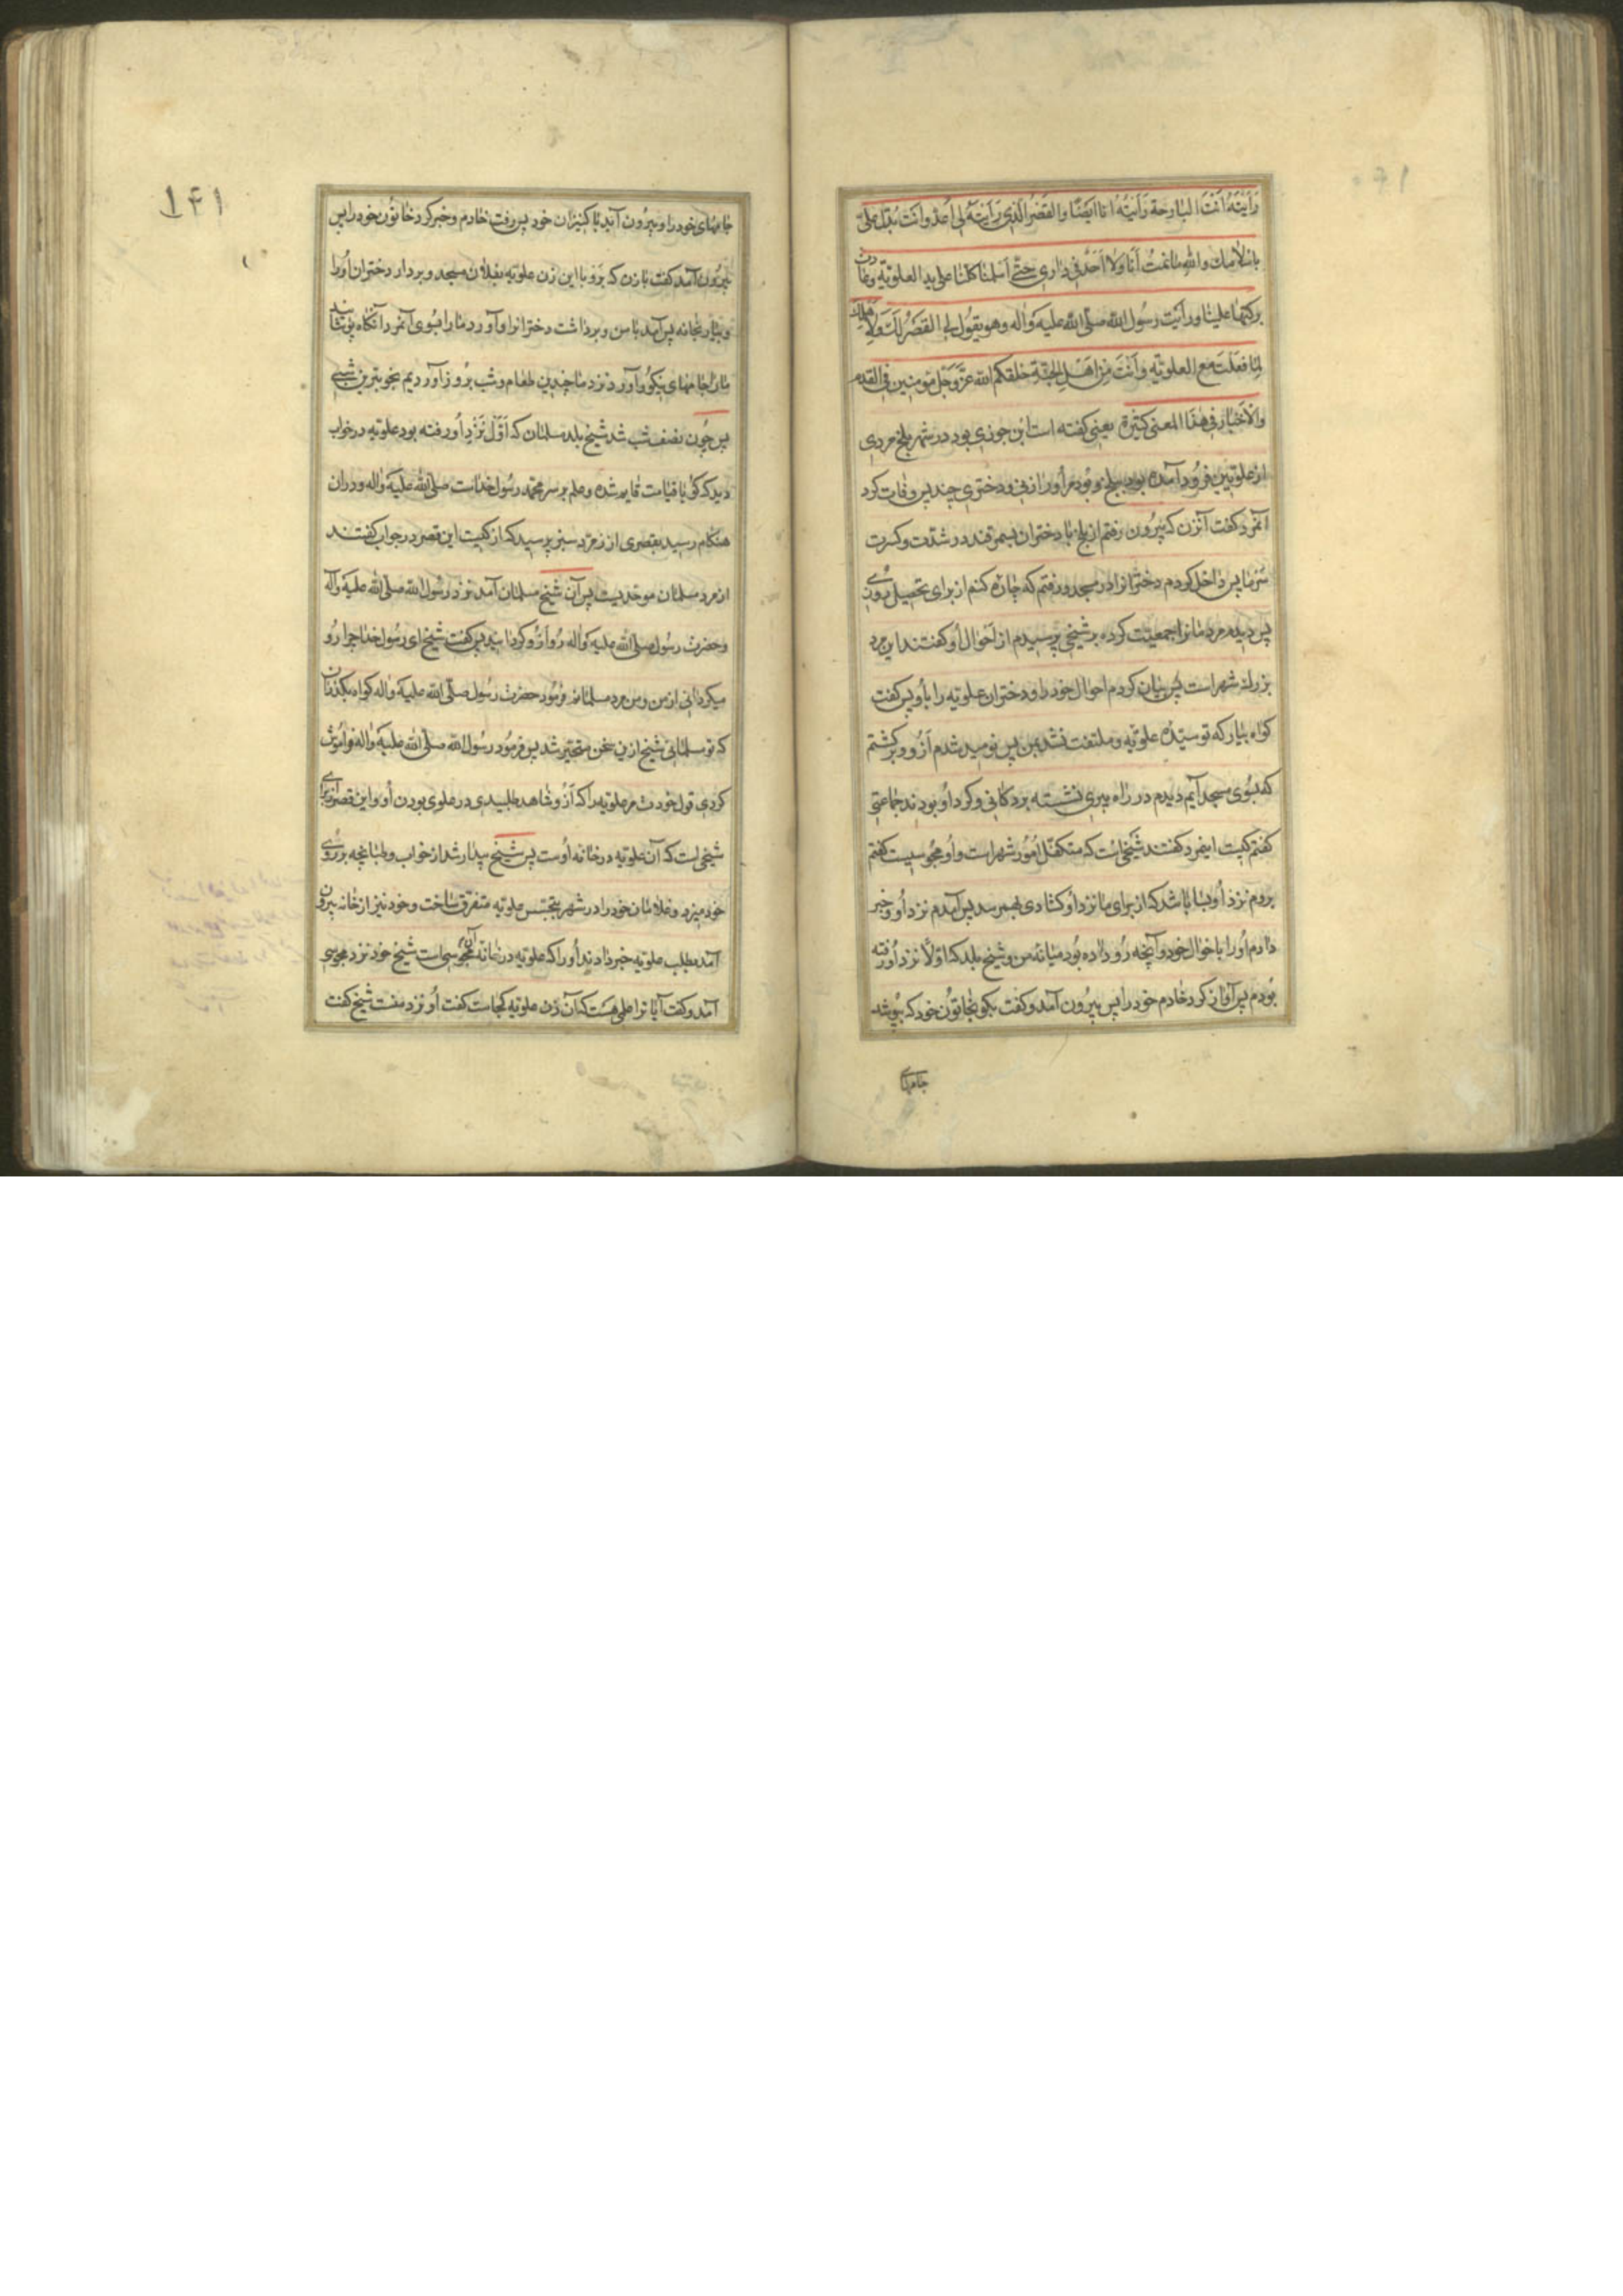 رَأَیْتَهُ اَنْتَ البٰارحة رَأَیتُهُ انا اَیضًا والقَصْرُ الّذی رَأَیتَهُ لی اُعدّ وانت تُدلّ علیّ
باسْلامِك والله مٰا نمتُ اَنَا وَلا اَحَدٌ فی دٰاری حتّی اَسلمنٰا کلنٰا علی ید العلویّة وعٰادت
برکتهٰا علینٰا ورأیت رسُول الله صلّی الله علیه وَاله وهو یقُول لی القصْرُ لَك وَلِاَهلك
لِمٰا فعَلتَ مع العلویّه واَنتَ مِن اَهْل الجنّة خلقکم الله عزّ وَجَلّ مؤمنین فی القدم
والاَخبٰار فی هٰذَا المعنی کثیرة یعنی کفته است ابن جوزی بود در شهر بلخ مردی
از علویّین فرُود آمده بود ببلخ و بُود مر اُو را زنی و دختری چند پس وفٰات کرد
آنمرد کفت آنزن که بیرُون رفتم از بلخ بٰا دختران بسمرقند در شدّت وکثرت
سَرمٰا پس دٰاخل کردم دخترٰانرا در مسجد و رفتم که چٰاره کنم از برای تحصیل رُوزی
پس دیدم مردمٰانرا جمعیّت کرده بر شیخی پرسیدم از اَحْوال اُو کفتند این مرد
بزرك شهر است پس بیٰان کردم احوٰال خود را و دختران علویّه را باُو پس کفت
کوٰاه بیٰار که تو سیّدهٔ علویّه و ملتفت نشد بمن پس نومید شدم اَزو و برکشتم
که بسُوی مسجد آیم دیدم در رٰاه پیری نشسته بر دکانی وکرد اُو بودند جمٰاعتی
کفتم کیست اینمرد کفتند شیخی است که متکفّل اُمُور شهر است و اُو مجُوسیست کفتم
بروم نزد اُو شٰایا باشد که از برای مٰا نزد اُو کشٰادی بهمرسد پس آمدم نزد اُو و خبر
دٰادم اُو را باحْوٰال خود و آنچه رُو دٰاده بُود میٰانهٔ من و شیخ بلد که اوّلاً نزد اُو رفته
بُودم پس آوٰاز کرد خٰادم خود را پس بیرُون آمد و کفت بکو بخٰاتُون خود که بپوشد
جٰامهای
١٤١
جٰامهای خود را و بیرُون آید بٰا کنیزان خود پس رفت خٰادم و خبر کرد خٰاتُون خود را پس
بیرُون آمد کفت بٰا زن که برَو بٰا این زن علویّه بفلان مسجد و بردار دختران اُو را
و بیٰار بخٰانه پس آمد بٰا من و بردٰاشت دخترٰانرا و آورد مٰا را بسُوی آنمرد آنکٰاه پُوشٰانید
مٰا را جٰامهٰای نیکُو و آورد نزد مٰا چندین طعٰام و شب برُوز آوردیم بخوبترین شبی
پس چُون نصف شب شد شیخ بلد مسلمٰان که اَوّل نَزْدِ اُو رفته بود علویّه در خواب
دید که کویٰا قیٰامت قٰایم شده و علم بر سر محمّد رسُول خدٰاست صلّی الله علیه وٰاله و دران
هنکٰام رسید بقصری از زمرّد سبز پرسید که از کیست این قصر در جواب کفتند
از مرد مسلمٰان موحّدیست پس آن شیخ مسلمٰان آمد نزد رسُول الله صلّی الله علیه وآله
و حضرت رسُول صلّی الله علیه وٰاله رُو اَزُو کردٰانید پس کفت شیخ ای رسُول خدٰا چرا رُو
میکردٰانی از من و من مرد مسلمٰانم فرمُود حضرت رسُول صلّی الله علیه وٰاله کوٰاه بکذران
که تو مسلمٰانی شیخ ازین سخن متحیّر شد پس فرمُود رسُول الله صلّی الله علیه وٰاله فرٰامُوش
کردی قول خودت مر علویّه را که اَزُو شٰاهد طلبیدی در علوی بودن اُو و این قصر از برای
شیخی است که آن علویّه در خٰانه اُوست پس شیخ بیدٰار شد از خواب و طپٰانچه بر رُوی
خود میزد و غلامٰان خود را در شهر بتجسّس علویّه متفرّق سٰاخت و خود نیز از خٰانه بیرُون
آمد بطلب علویّه خبر دٰادند اُو را که علویّه در خٰانه آن مجُوسی است شیخ خود نزد مجوسی
آمد و کفت آیٰا ترا علمی هست که آن زن علویّه کجٰاست کفت اُو نزد منست شیخ کفت